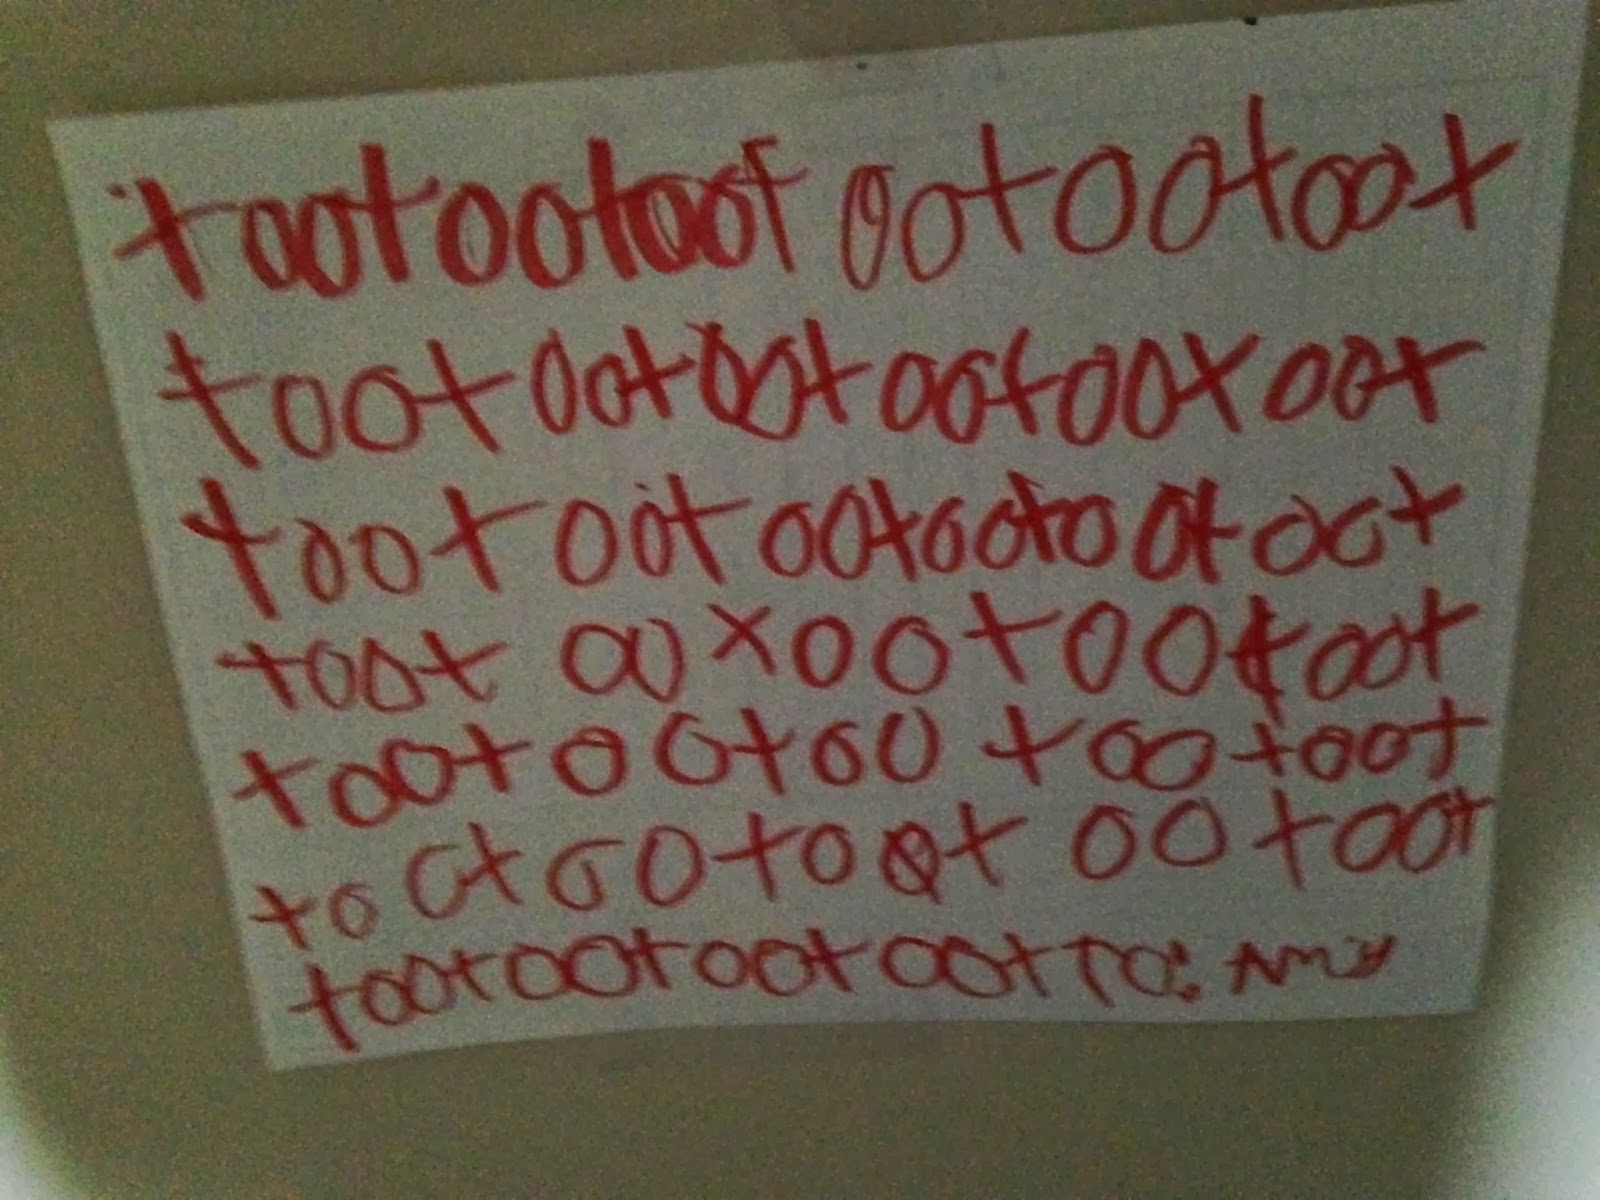 tootootoot ootootoot
tootootootootootoot
toot ootootootootoot
toot ootootootoot
tootootoo tootoot
tootootoot ootoot
tootootootootTo: Amy